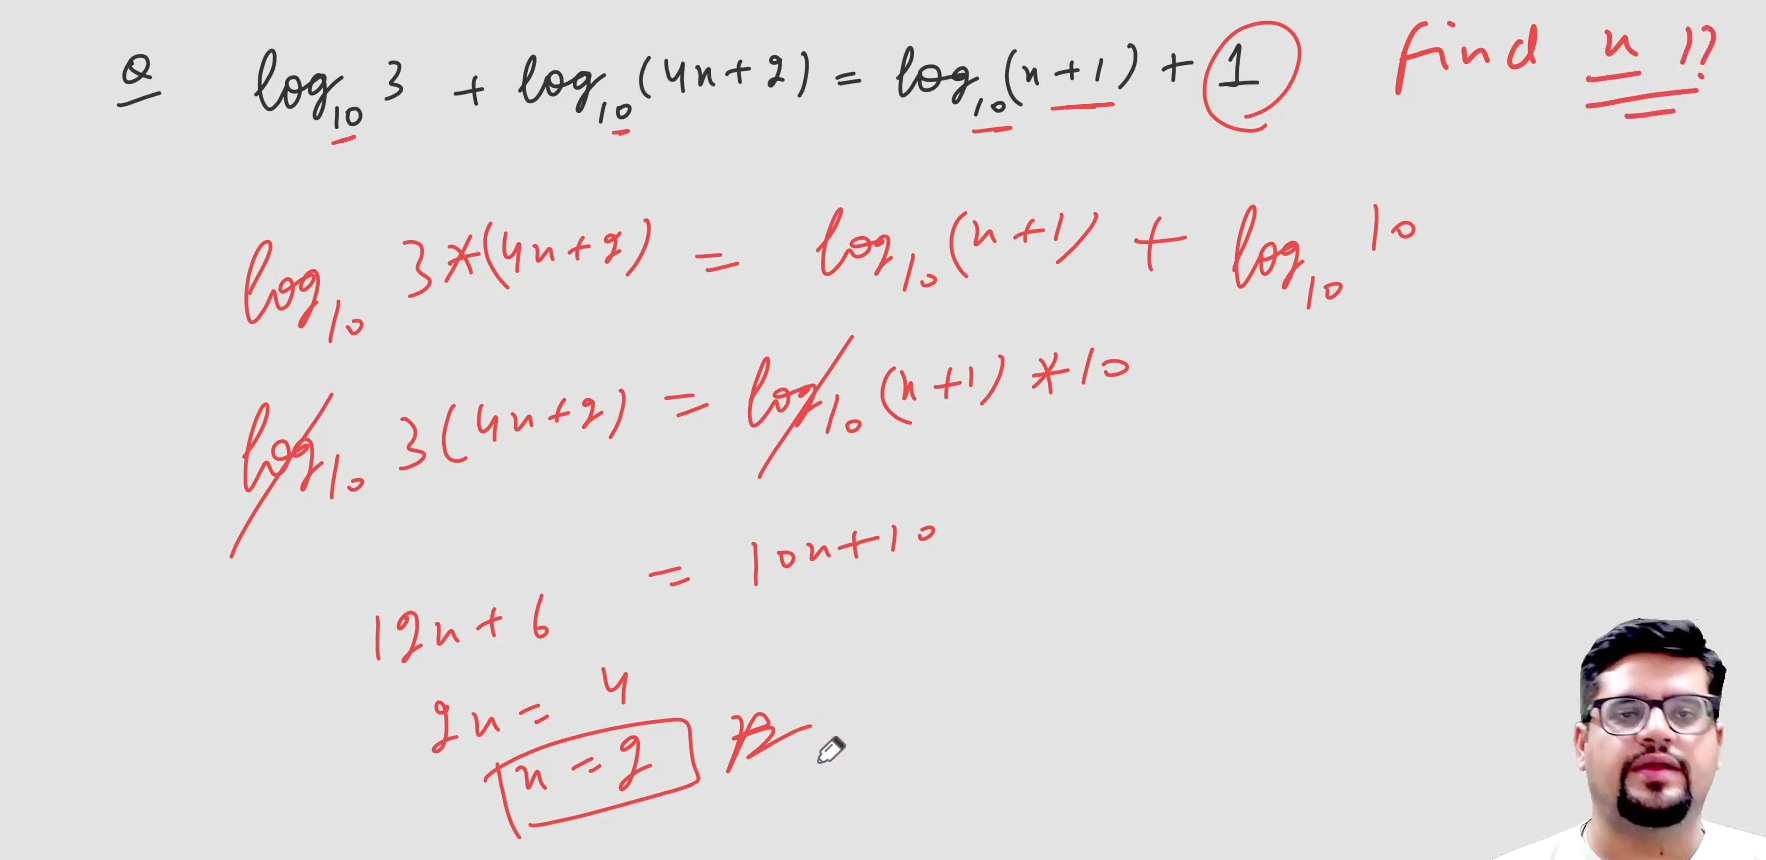 Q log₁₀ 3 + log₁₀ (4n+2) = log₁₀ (n+1) + 1 find n !?
log₁₀ 3*(4n+2) = log₁₀ (n+1) + log₁₀ 10
log₁₀ 3(4n+2) = log₁₀ (n+1) * 10
12n+6 = 10n+10
2n = 4
n = 2